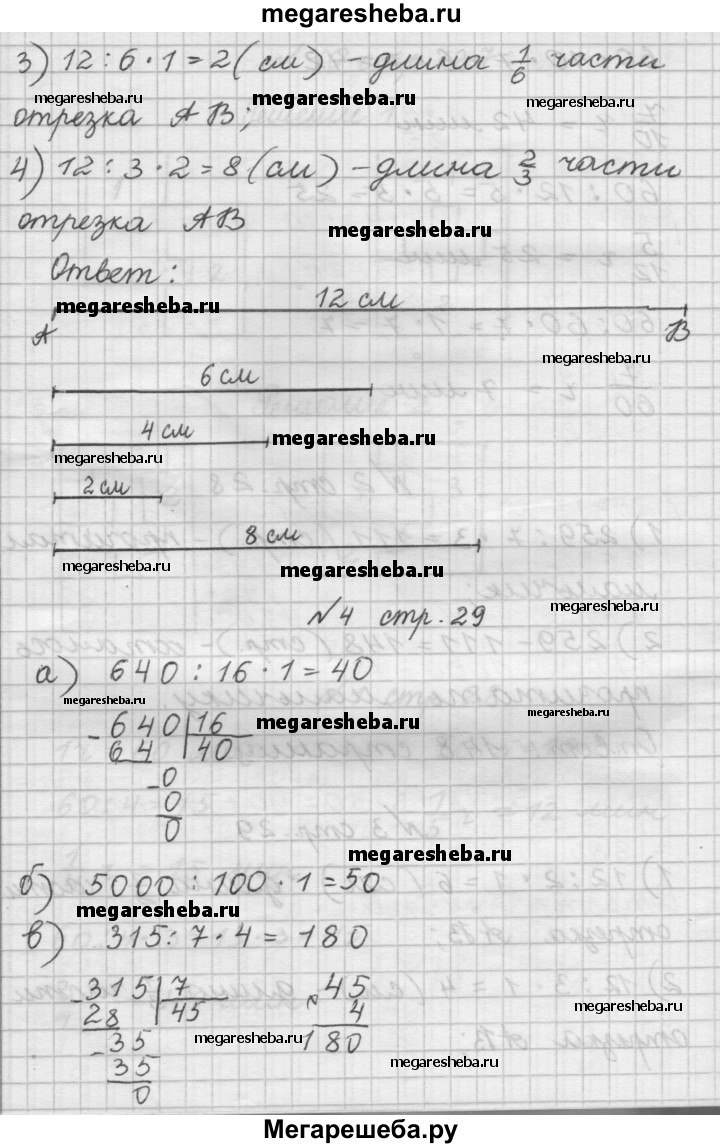 megaresheba.ru
3) 12 : 6 · 1 = 2 (см) - длина 1/6 части
megaresheba.ru megaresheba.ru megaresheba.ru
отрезка АВ;
4) 12 : 3 · 2 = 8 (см) - длина 2/3 части
отрезка АВ
megaresheba.ru
Ответ:
12 см
megaresheba.ru
А В
megaresheba.ru
6 см
4 см
megaresheba.ru
megaresheba.ru
2 см
8 см
megaresheba.ru megaresheba.ru
№4 стр. 29
megaresheba.ru
а) 640 : 16 · 1 = 40
megaresheba.ru megaresheba.ru
- 640 | 16
megaresheba.ru
64 | 40
- 0
0
0
megaresheba.ru
б) 5000 : 100 · 1 = 50
megaresheba.ru
в) 315 : 7 · 4 = 180
- 315 | 7 × 45
28 | 45 4
megaresheba.ru
- 35 180
megaresheba.ru
35
megaresheba.ru
0
Мегарешеба.ру